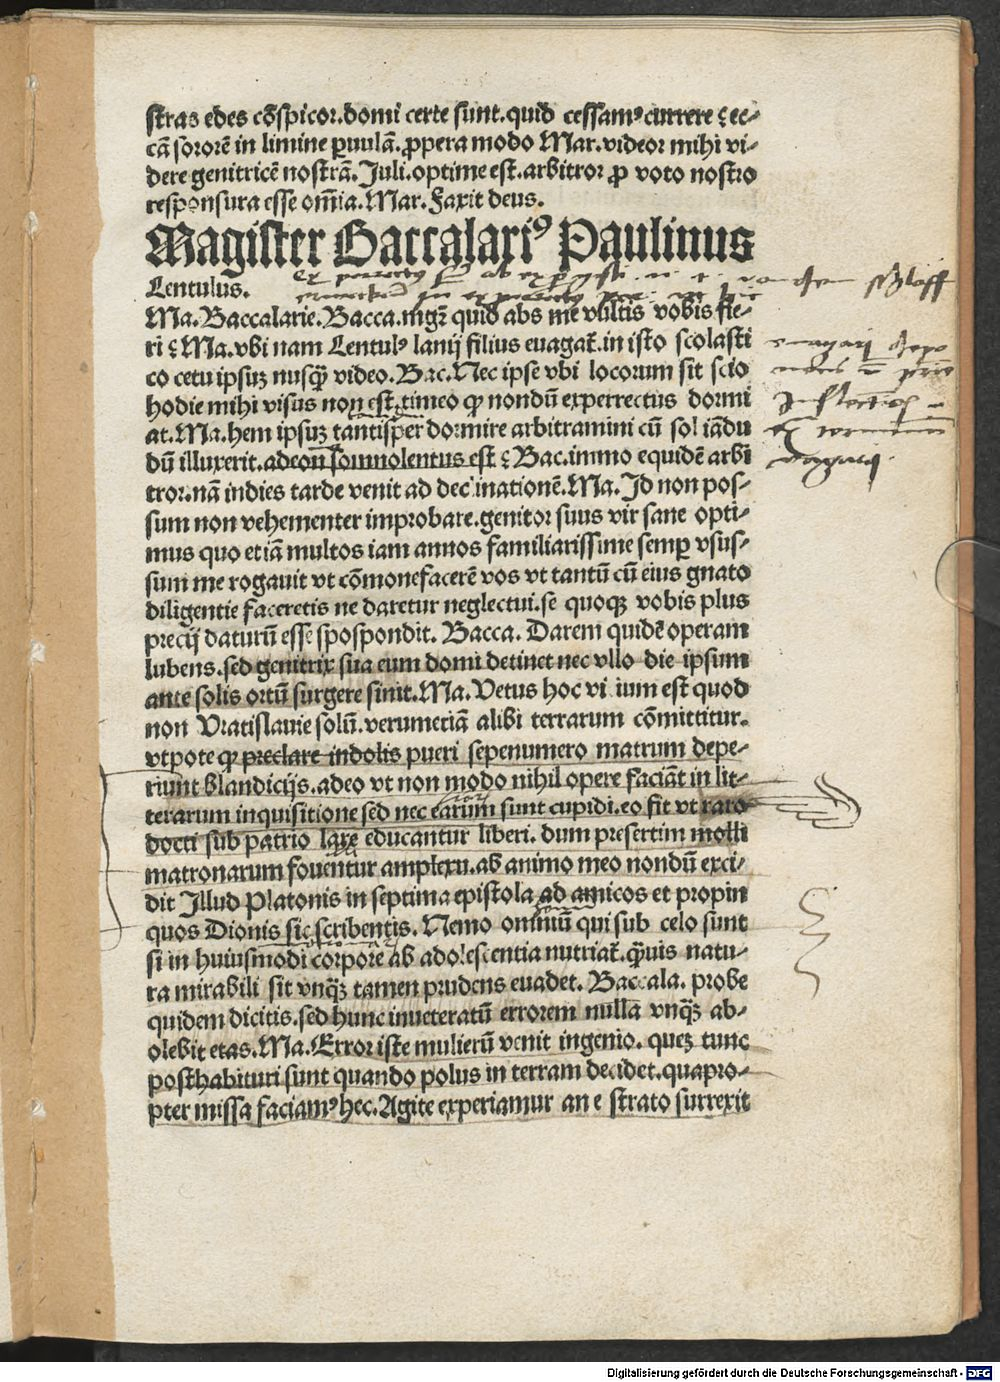 stras edes cōspicor.domi certe sunt.quid cessamꝰ currere ⁊ ec⸗
cā sororē in limine ꝑuulā.ꝓpera modo Mar.videor mihi vi⸗
dere genitricē nostrā.Juli.optime est.arbitror ꝓ voto nostro
responsura esse om̄ia.Mar.Faxit deus.
Magister Baccalariꝰ Paulinus
schloff
Lentulus.
Ma.Baccalarie.Bacca.mgr̄ quid abs me vultis vobis fie⸗
ri ⁊ Ma.vbi nam Lentulꝰ lanij filius euagat̄.in isto scolasti
co cetu ipsuꝫ nusꝙ̄ video.Bac.Nec ipse vbi locorum sit scio
hodie mihi visus non est.timeo ꝙ nondū experrectus dormi
at.Ma.hem ipsuꝫ tantisper dormire arbitramini cū sol iādu
dū illuxerit.adeon somnolentus est ⁊ Bac.immo equidē arbi
tror.nā indies tarde venit ad declinationē.Ma.Id non pos⸗
sum non vehementer improbare.genitor suus vir sane opti⸗
mus quo etiā multos iam annos familiarissime semꝑ vsus⸗
sum me rogauit vt cōmonefacerē vos vt tantū cū eius gnato
diligentie faceretis ne daretur neglectui.se quoqꝫ vobis plus
precij daturū esse spospondit. Bacca. Darem quidē operam
lubens.sed genitrix sua eum domi detinet nec vllo die ipsum
ante solis ortū surgere sinit.Ma.Vetus hoc vi ium est quod
non Vratislauie solū.verumetiā alibi terrarum cōmittitur.
vtpote ꝙ preclare indolis pueri sepenumero matrum depe⸗
riunt blandicijs.adeo vt non modo nihil opere faciāt in lit⸗
terarum inquisitione sed nec earum sunt cupidi.eo fit vt raro
docti sub patrio lare educantur liberi. dum presertim molli
matronarum fouentur amplexu.ab animo meo nondū exci⸗
dit Illud Platonis in septima epistola ad amicos et propin
quos Dionis sic scribentis. Nemo omniū qui sub celo sunt
si in huiusmodi corpore ab adolescentia nutriat̄.ꝙ̄uis natu⸗
ra mirabili sit vnꝙ̄ꝫ tamen prudens euadet. Baccala. probe
quidem dicitis.sed hunc inueteratū errorem nulla vnꝙ̄ꝫ ab⸗
olebit etas.Ma.Error iste mulierū venit ingenio. queꝫ tunc
posthabituri sunt quando polus in terram decidet.quapro⸗
pter missa faciamꝰ hec.Agite experiamur an e strato surrexit
Digitalisierung gefördert durch die Deutsche Forschungsgemeinschaft - DFG